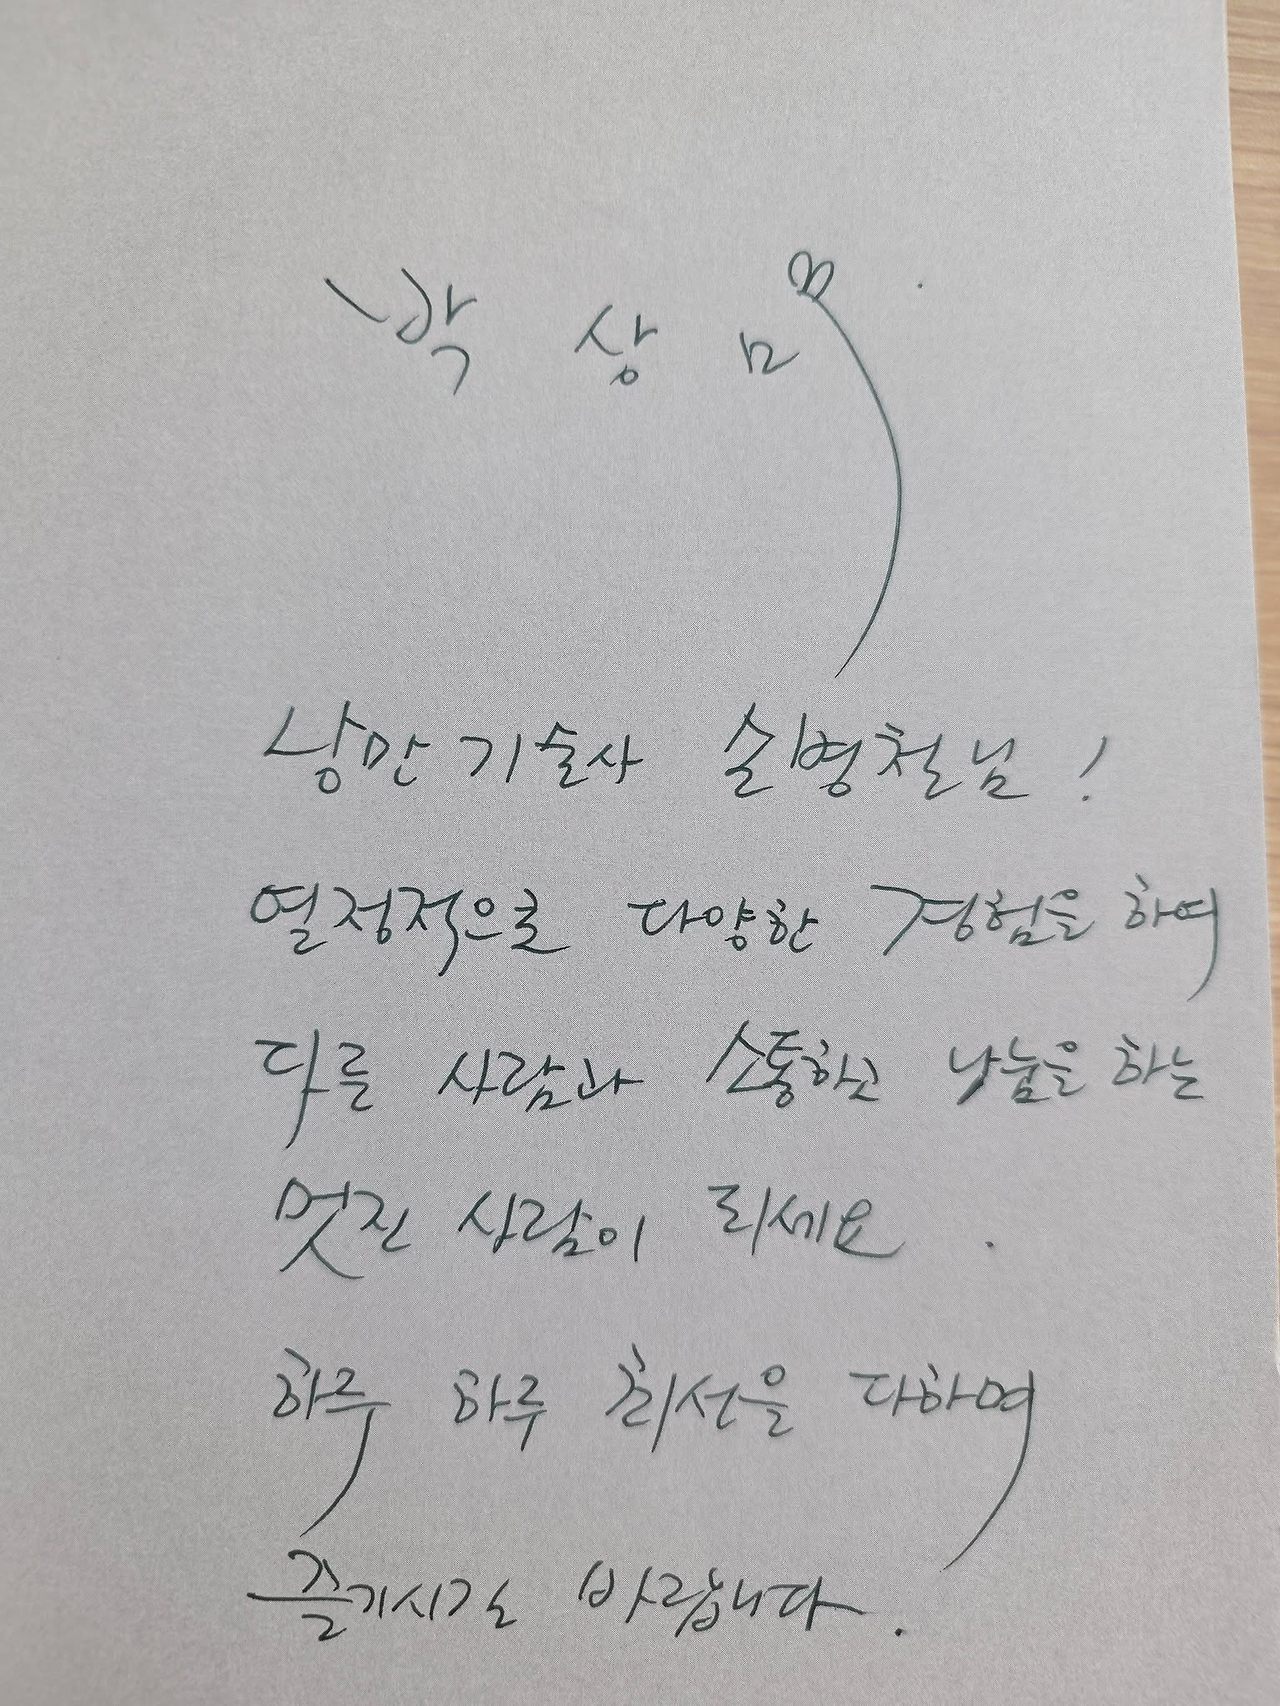 박상미
낭만기술사 심병철님!
열정적으로 다양한 경험을 하여
다른 사람과 소통하고 나눔을 하는
멋진 사람이 되세요.
하루 하루 최선을 다하며
즐기시길 바랍니다.